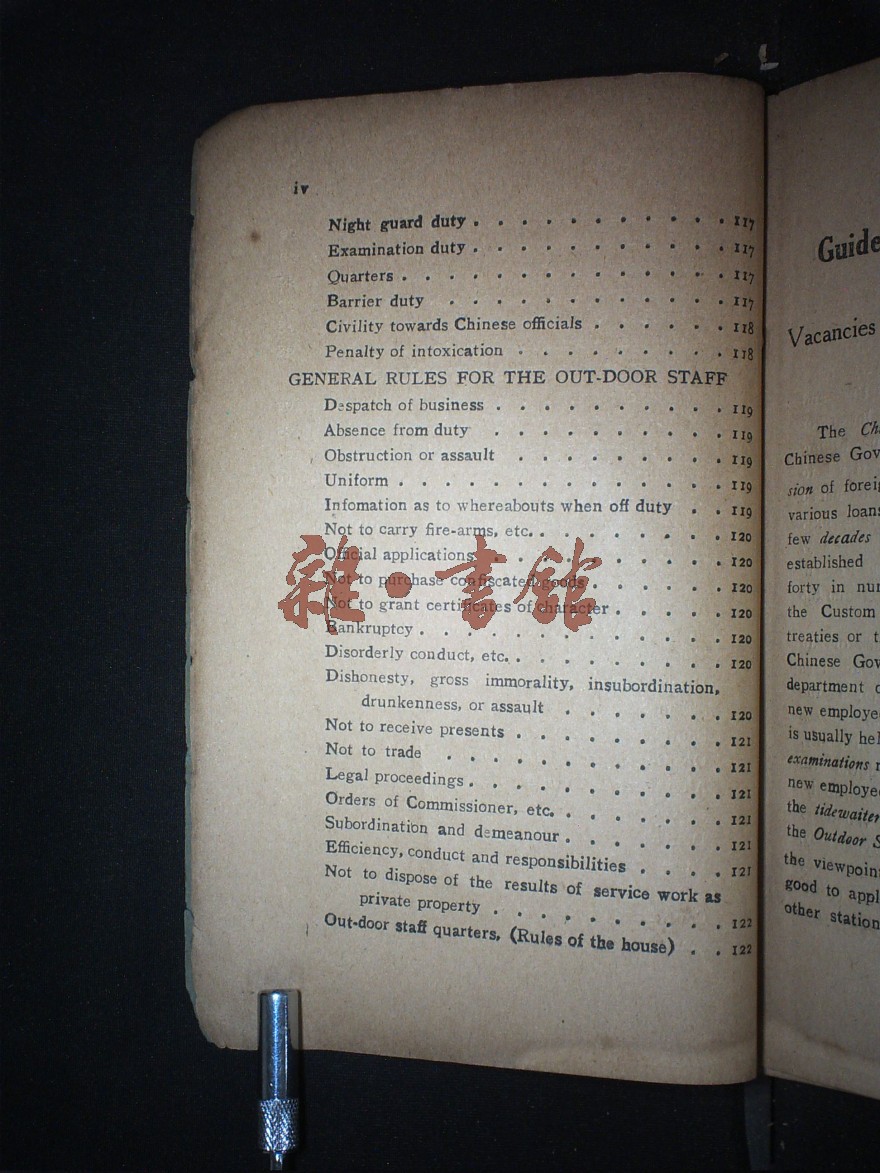 iv
Night guard duty . . . . . . . . . . . 117
Examination duty . . . . . . . . . . . 117
Quarters . . . . . . . . . . . . . . 117
Barrier duty . . . . . . . . . . . . 117
Civility towards Chinese officials . . . . . . 118
Penalty of intoxication . . . . . . . . . 118
GENERAL RULES FOR THE OUT-DOOR STAFF
Despatch of business . . . . . . . . . . 119
Absence from duty . . . . . . . . . . 119
Obstruction or assault . . . . . . . . . 119
Uniform . . . . . . . . . . . . . . 119
Infomation as to whereabouts when off duty . . 119
Not to carry fire-arms, etc. . . . . . . . . 120
Official applications . . . . . . . . . . 120
Not to purchase confiscated goods . . . . . . 120
Not to grant certificates of character . . . . . 120
Bankruptcy . . . . . . . . . . . . . 120
Disorderly conduct, etc. . . . . . . . . . 120
Dishonesty, gross immorality, insubordination,
drunkenness, or assault . . . . . . . 120
Not to receive presents . . . . . . . . . 121
Not to trade . . . . . . . . . . . . 121
Legal proceedings . . . . . . . . . . . 121
Orders of Commissioner, etc. . . . . . . . 121
Subordination and demeanour . . . . . . . 121
Efficiency, conduct and responsibilities . . . . 121
Not to dispose of the results of service work as
private property . . . . . . . . . . 122
Out-door staff quarters, (Rules of the house) . . 122
雜·書館
Guide
Vacancies
The
Chinese
sion of
various
few decades
established
forty in
the Custom
treaties or
Chinese
department
new
is usually
examinations
new
the
the Outdoor
the
good to
other station